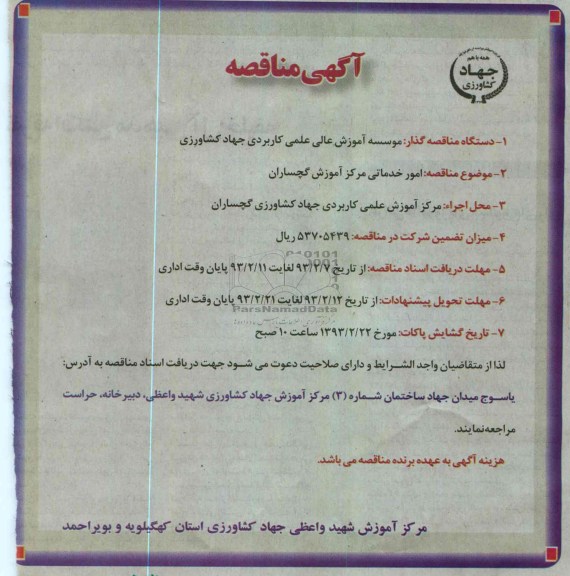 همه با هم
جهاد
کشاورزی
آگهی مناقصه
۱- دستگاه مناقصه گذار: موسسه آموزش عالی علمی کاربردی جهاد کشاورزی
۲- موضوع مناقصه: امور خدماتی مرکز آموزش گچساران
۳- محل اجراء: مرکز آموزش علمی کاربردی جهاد کشاورزی گچساران
۴- میزان تضمین شرکت در مناقصه: ۵۳۷۰۵۴۳۹ ریال
۵- مهلت دریافت اسناد مناقصه: از تاریخ ۹۳/۲/۷ لغایت ۹۳/۲/۱۱ پایان وقت اداری
۶- مهلت تحویل پیشنهادات: از تاریخ ۹۳/۲/۱۲ لغایت ۹۳/۲/۲۱ پایان وقت اداری
ParsNamadData
۷- تاریخ گشایش پاکات: مورخ ۱۳۹۳/۲/۲۲ ساعت ۱۰ صبح
لذا از متقاضیان واجد الشرایط و دارای صلاحیت دعوت می شود جهت دریافت اسناد مناقصه به آدرس:
یاسوج میدان جهاد ساختمان شماره (۳) مرکز آموزش جهاد کشاورزی شهید واعظی، دبیرخانه، حراست
مراجعه نمایند.
هزینه آگهی به عهده برنده مناقصه می باشد.
مرکز آموزش شهید واعظی جهاد کشاورزی استان کهگیلویه و بویراحمد